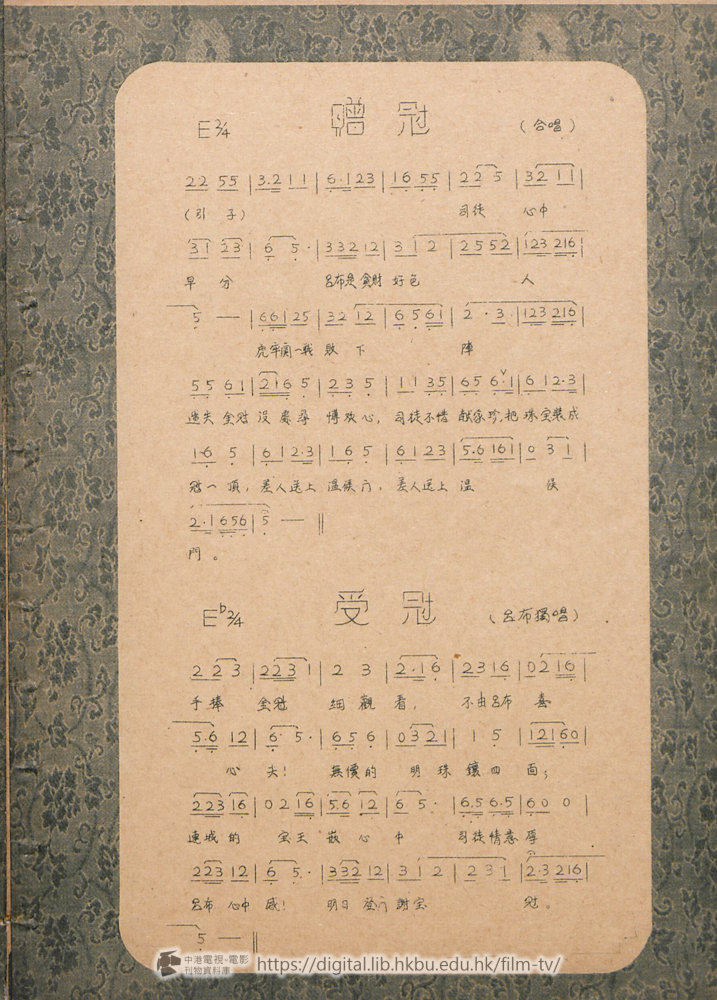 E 2/4 贈冠 (合唱)
22 55 | 3·2 11 | 6·123 | 16 55 | 22 5 | 32 11 |
(引子) 司徒 心中
31 23 | 6 5· | 332 12 | 3 1 2 | 25 52 | 123 216 |
早分 呂布是貪財好色 人
5 — | 661 25 | 32 12 | 6 5 61 | 2 · 3· | 123 216 |
虎牢關一戰敗下 陣
55 61 | 216 5 | 23 5 | 11 35 | 65 6·1 | 6 12·3 |
迷失金冠沒處尋 博歡心,司徒不惜獻家珍,把珠宝裝成
1·6 5 | 6 12·3 | 16 5 | 61 23 | 5·6 161 | 0 31 |
冠一頂,差人送上溫候门,差人送上溫 侯
2·1 656 | 5 — ‖
門。
E♭ 2/4 受冠 (呂布獨唱)
2 23 | 223 1 | 2 3 | 2·16 | 23 16 | 02 16 |
手捧 金冠 細觀看, 不由呂布 喜
5·6 12 | 6 5· | 65 6 | 0321 | 1 5 | 12160 |
心 夫! 無價的 明珠鑲四面;
223 16 | 02 16 | 5·6 12 | 6 5· | 6·5 6·5 | 6 0 0 |
連城的 宝玉嵌心中 司徒情意厚
223 12 | 6 5· | 332 12 | 3 1 2 | 2 31 | 2·3 216 |
呂布心中感! 明日登门謝宝 冠。
5 — ‖
中港電視·電影
刊物資料庫
https://digital.lib.hkbu.edu.hk/film-tv/